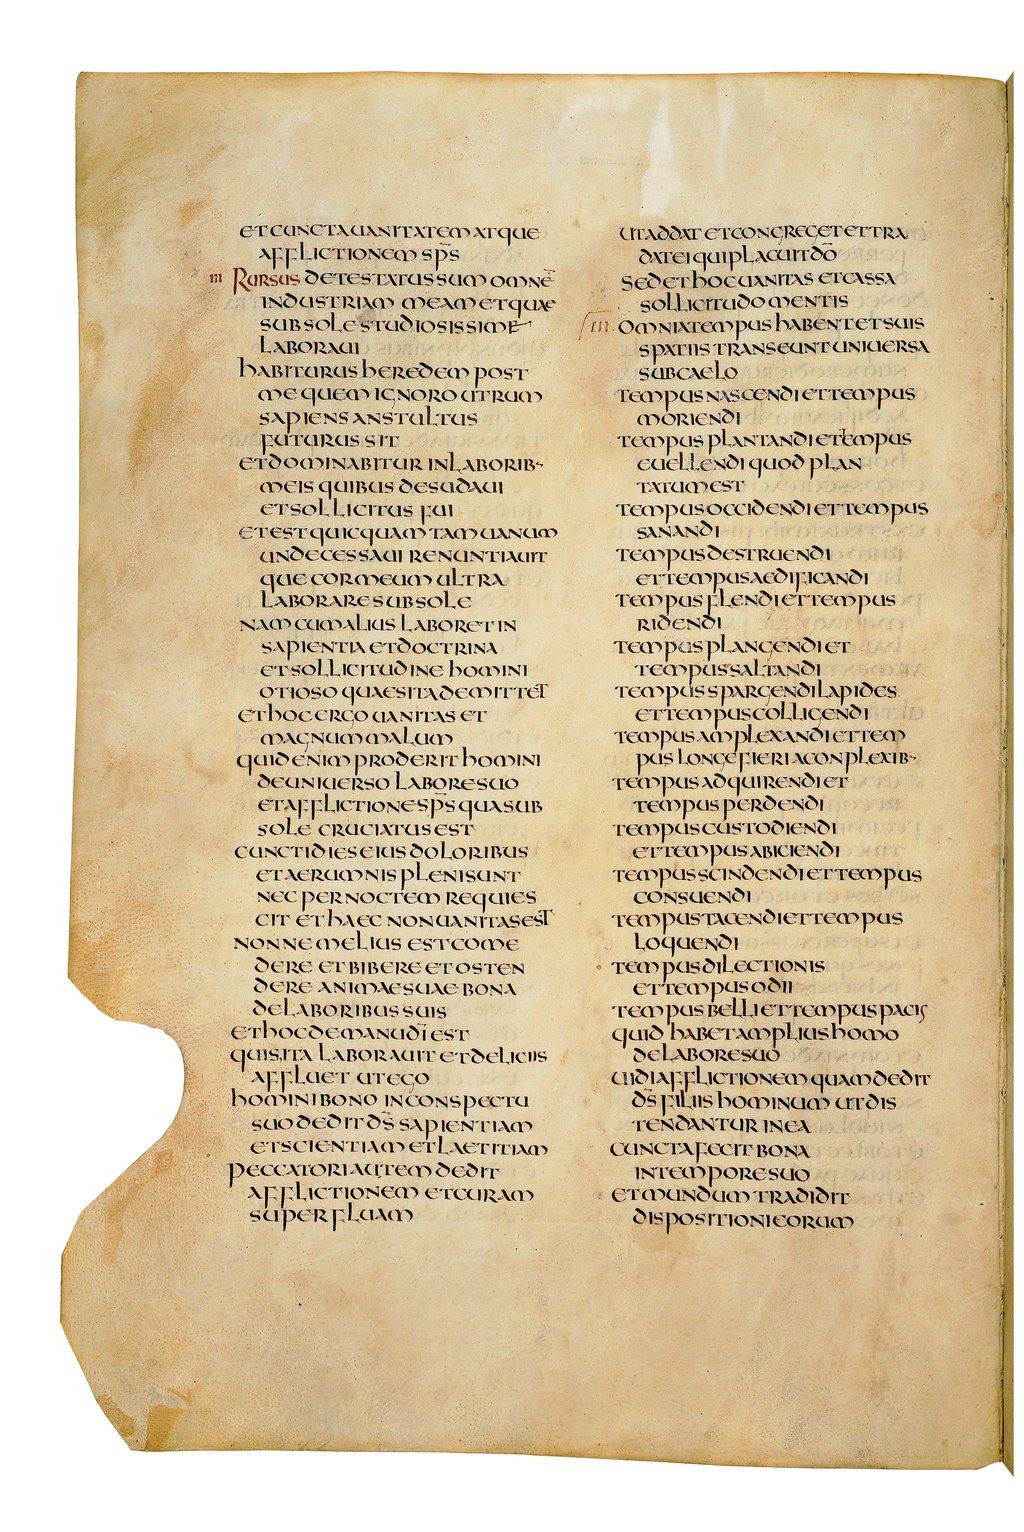 ET CUNCTA UANITATEM ATQUE
AFFLICTIONEM SP̅S
III RURSUS DETESTATUS SUM OMNE̅
INDUSTRIAM MEAM ET QUAE
SUB SOLE STUDIOSISSIME
LABORAUI
HABITURUS HEREDEM POST
ME QUEM IGNORO UTRUM
SAPIENS AN STULTUS
FUTURUS SIT
ET DOMINABITUR IN LABORIB·
MEIS QUIBUS DESUDAUI
ET SOLLICITUS FUI
ET EST QUICQUAM TAM UANUM
UNDE CESSAUI RENUNTIAUIT
QUE COR MEUM ULTRA
LABORARE SUB SOLE
NAM CUM ALIUS LABORET IN
SAPIENTIA ET DOCTRINA
ET SOLLICITUDINE HOMINI
OTIOSO QUAESITA DEMITTET
ET HOC ERGO UANITAS ET
MAGNUM MALUM
QUID ENIM PRODERIT HOMINI
DE UNIUERSO LABORE SUO
ET AFFLICTIONE SP̅S QUA SUB
SOLE CRUCIATUS EST
CUNCTI DIES EIUS DOLORIBUS
ET AERUMNIS PLENI SUNT
NEC PER NOCTEM REQUIES
CIT ET HAEC NON UANITAS EST
NONNE MELIUS EST COME
DERE ET BIBERE ET OSTEN
DERE ANIMAE SUAE BONA
DE LABORIBUS SUIS
ET HOC DE MANU DI̅ EST
QUIS ITA LABORAUIT ET DELICIIS
AFFLUET UT EGO
HOMINI BONO IN CONSPECTU
SUO DEDIT D̅S SAPIENTIAM
ET SCIENTIAM ET LAETITIAM
PECCATORI AUTEM DEDIT
AFFLICTIONEM ET CURAM
SUPERFLUAM
UT ADDAT ET CONGREGET ET TRA
DAT EI QUI PLACUIT DO̅
SED ET HOC UANITAS ET CASSA
SOLLICITUDO MENTIS
III. OMNIA TEMPUS HABENT ET SUIS
SPATIIS TRANSEUNT UNIUERSA
SUB CAELO
TEMPUS NASCENDI ET TEMPUS
MORIENDI
TEMPUS PLANTANDI ET TEMPUS
EUELLENDI QUOD PLAN
TATUM EST
TEMPUS OCCIDENDI ET TEMPUS
SANANDI
TEMPUS DESTRUENDI
ET TEMPUS AEDIFICANDI
TEMPUS FLENDI ET TEMPUS
RIDENDI
TEMPUS PLANGENDI ET
TEMPUS SALTANDI
TEMPUS SPARGENDI LAPIDES
ET TEMPUS COLLIGENDI
TEMPUS AMPLEXANDI ET TEM
PUS LONGE FIERI A CONPLEXIB·
TEMPUS ADQUIRENDI ET
TEMPUS PERDENDI
TEMPUS CUSTODIENDI
ET TEMPUS ABICIENDI
TEMPUS SCINDENDI ET TEMPUS
CONSUENDI
TEMPUS TACENDI ET TEMPUS
LOQUENDI
TEMPUS DILECTIONIS
ET TEMPUS ODII
TEMPUS BELLI ET TEMPUS PACIS
QUID HABET AMPLIUS HOMO
DE LABORE SUO
UIDI AFFLICTIONEM QUAM DEDIT
D̅S FILIIS HOMINUM UT DIS
TENDANTUR IN EA
CUNCTA FECIT BONA
IN TEMPORE SUO
ET MUNDUM TRADIDIT
DISPOSITIONI EORUM